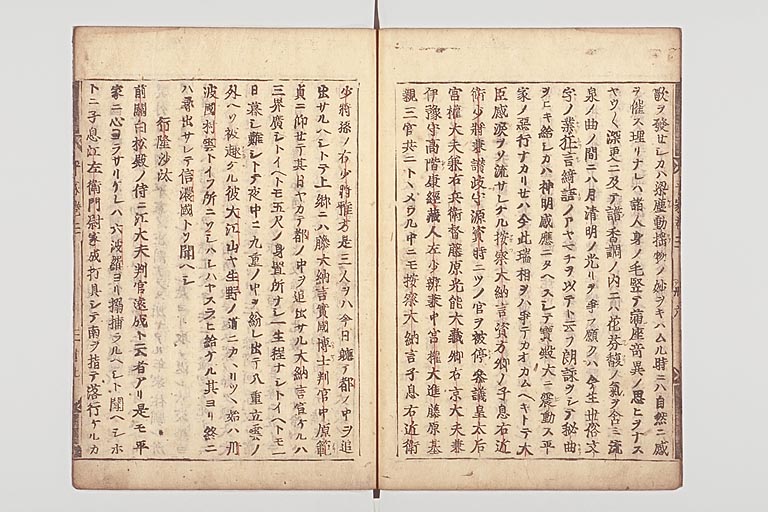 歌ヲ發セシカハ梁塵動揺妙ノ妙ヲキハムル時ニハ自然ニ感
ヲ催ス理リナレハ諸人身ノ毛竪テ満座奇異ノ思ヒヲナス
ヤウ〱深更ニ及テ譜香調ノ内ニハ花芬馥ノ氣ヲ含ミ流
泉ノ曲ノ間ニハ月清明ノ光リヲ爭フ願クハ今生世俗文
字ノ業狂言綺語ノアヤマチヲ以テト云フ朗詠ヲシテ秘曲
ヲヒキ給シカハ神明感應ニタヘスシテ寶殿大ニ震動ス平
家ノ惡行ナカリセハ今此瑞相ヲハ爭テカオカムヘキトテ大
臣感涙ヲソ流サレケル按察大納言資方卿ノ子息右近
衛少將兼讃岐守源資時二ツノ官ヲ被停參議皇太后
宮權大夫兼右兵衛督藤原光能大藏卿右京大夫兼
伊豫守高階康經藏人左少辨兼中宮權大進藤原基
親三官共ニトヽメラル中ニモ按察大納言子息右近衛
少將孫ノ右少將雅方是三人ヲハ今日軈テ都ノ中ヲ追
出サルヘシトテ上卿ニハ藤大納言實國博士判官中原範
貞ニ仰セテ其日ヤカテ都ノ中ヲ追出サル大納言宣ケルハ
三界廣シトイヘトモ五尺ノ身置所ナシ一生程ナシトイヘトモ一
日暮シ難シトテ夜中ニ九重ノ中ヲ紛レ出テ八重立雲ノ
外ヘソ被趣ケル彼大江山ヤ生野ノ道ニカヽリツヽ始ハ丹
波國村雲トイフ所ニソシハシハヤスラヒ給ケル其ヨリ終ニ
ハ尋出サレテ信濃國トソ聞ヘシ
行隆沙汰
前關白松殿ノ侍ニ江大夫判官遠成ト云者アリ是モ平
家ニ心ヨラサリケレハ六波羅ヨリ搦捕ラルヘシト聞ヘシホ
トニ子息江左衛門尉家成打具シテ南ヲ指テ落行ケルカ